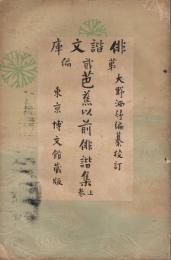 俳諧文庫
第貳編
大野洒竹編纂校訂
芭蕉以前俳諧集 上卷
東京博文館蔵版